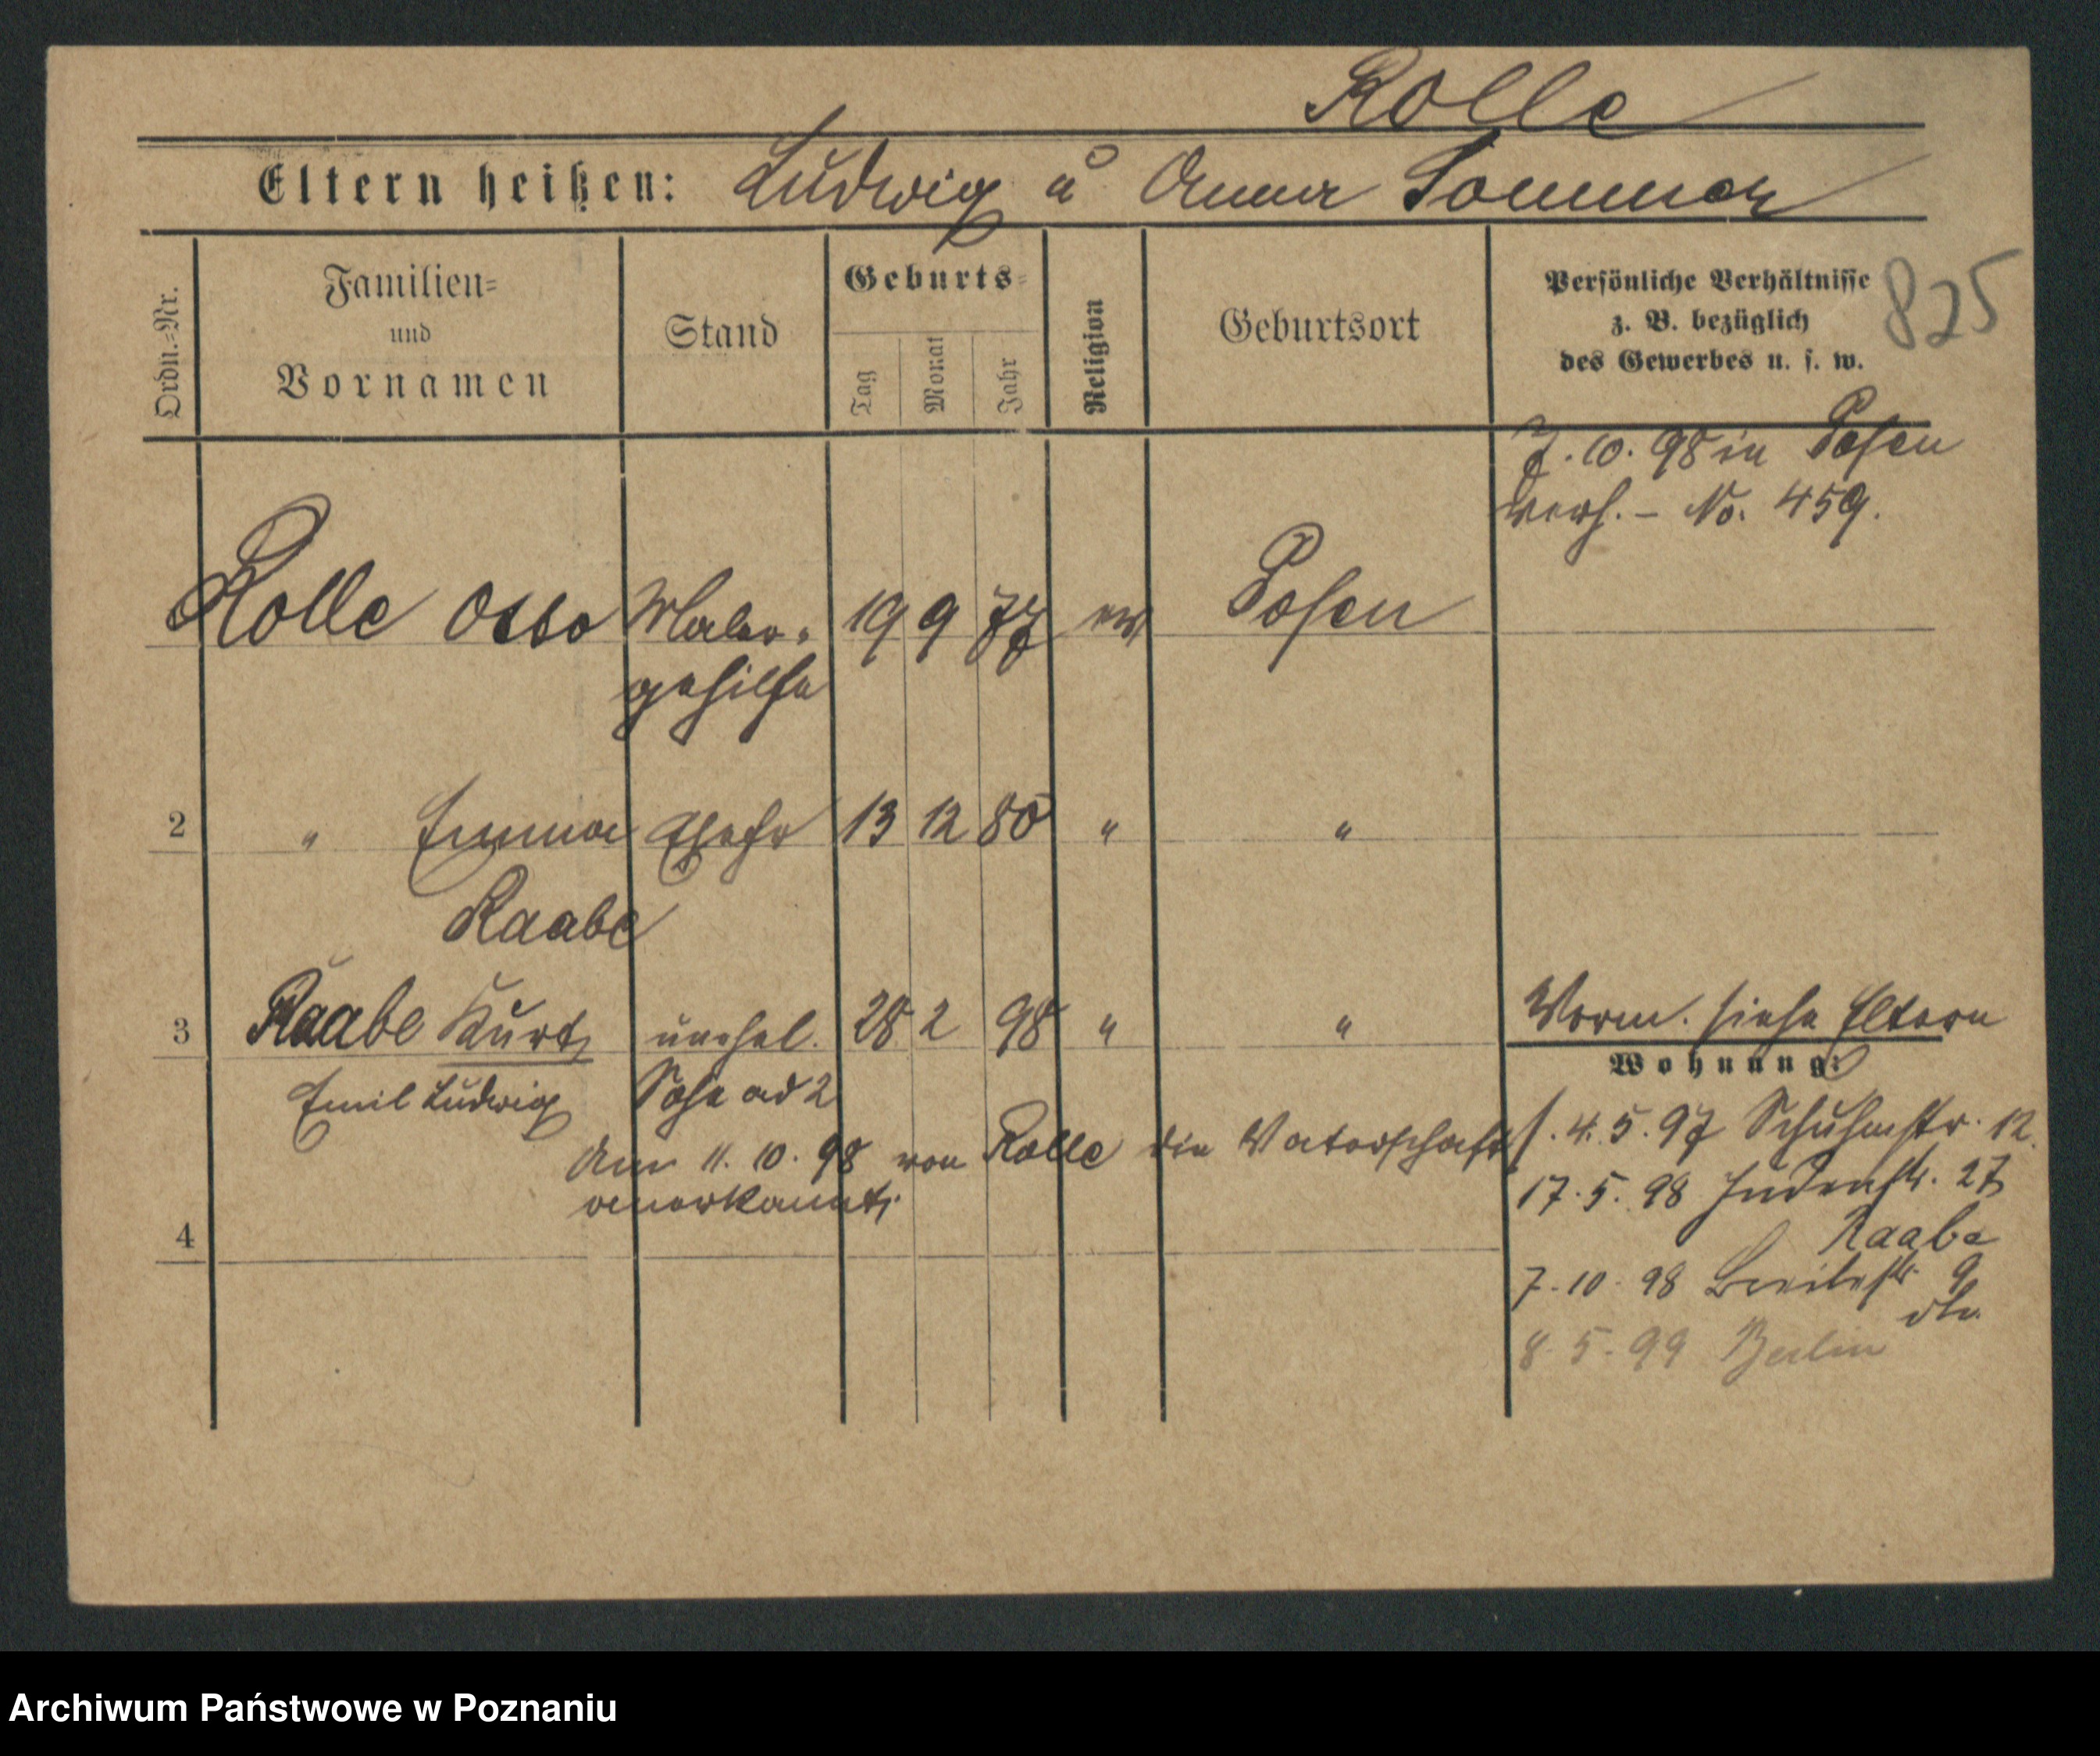 Rolle
Eltern heißen: Ludwig u Anna Sommer
Ordn.=Nr.
Familien=
und
Vornamen
Stand
Geburts=
Tag
Monat
Jahr
Religion
Geburtsort
Persönliche Verhältnisse
z. B. bezüglich
des Gewerbes u. s. w.
825
7. 10. 98 in Posen
verh. – No. 459.
Rolle Otto Maler= 19 9 77 ev Posen
gehilfe
2 " Emma Ehefr 13 12 80 " "
Raabe
3 Raabe Kurt unehel. 28 2 98 " " Vorm. siehe Eltern
Emil Ludwig Sohn ad 2
Wohnung:
Am 11. 10. 98 von Rolle die Vaterschaft
anerkannt.
4
f. 4. 5. 97 Schuhmstr. 12
17. 5. 98 Judenstr. 27
Raabe
7. 10. 98 Breitestr. 9
dto.
8. 5. 99 Berlin
Archiwum Państwowe w Poznaniu